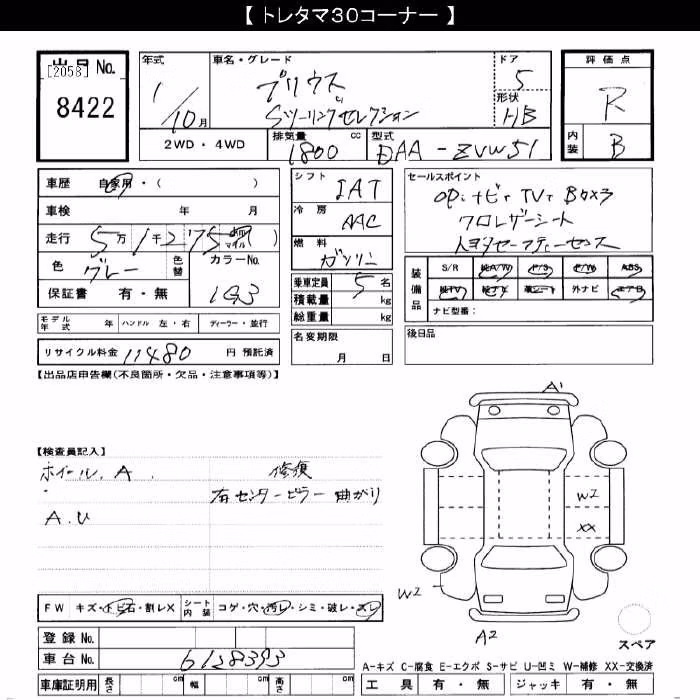 【 トレタマ30コーナー 】
出品No.
[2058]
8422
年式
1/10月
車名・グレード
プリウス
Sツーリングセレクション
ドア
5
形状
HB
評価点
R
内装
B
2WD・4WD
排気量
1800
cc
型式
DAA-ZVW51
車歴 自家用・( )
車検 年 月
走行 5万1千275
マイル
色
グレー
色替
カラーNo.
1G3
保証書 有・無
シフト
IAT
冷房
AAC
燃料
ガソリン
乗車定員 5 名
積載量 kg
総重量 kg
セールスポイント
OP.ナビ・TV・Bカメラ
クロレザーシート
トヨタセーフティーセンス
装備品
S/R
P/S
P/W
ABS
外ナビ
ナビ型番:
モデル年式 年
ハンドル 左・右
ディーラー・並行
名変期限
月 日
後日品
リサイクル料金 11480 円 預託済
【出品店申告欄(不良箇所・欠品・注意事項等)】
【検査員記入】
ホイール. A.
修復
右センターピラー曲がり
A.U
A1
W2
XX
W2
A2
スペア
FW キズ・トビ石・割レX
シート内装
コゲ・穴・汚レ・シミ・破レ・スレ
登録 No.
車台 No.
6128393
A-キズ C-腐食 E-エクボ S-サビ U-凹ミ W-補修 XX-交換済
車庫証明用 長さ cm 幅 cm 高さ cm
工具 有・無 ジャッキ 有・無